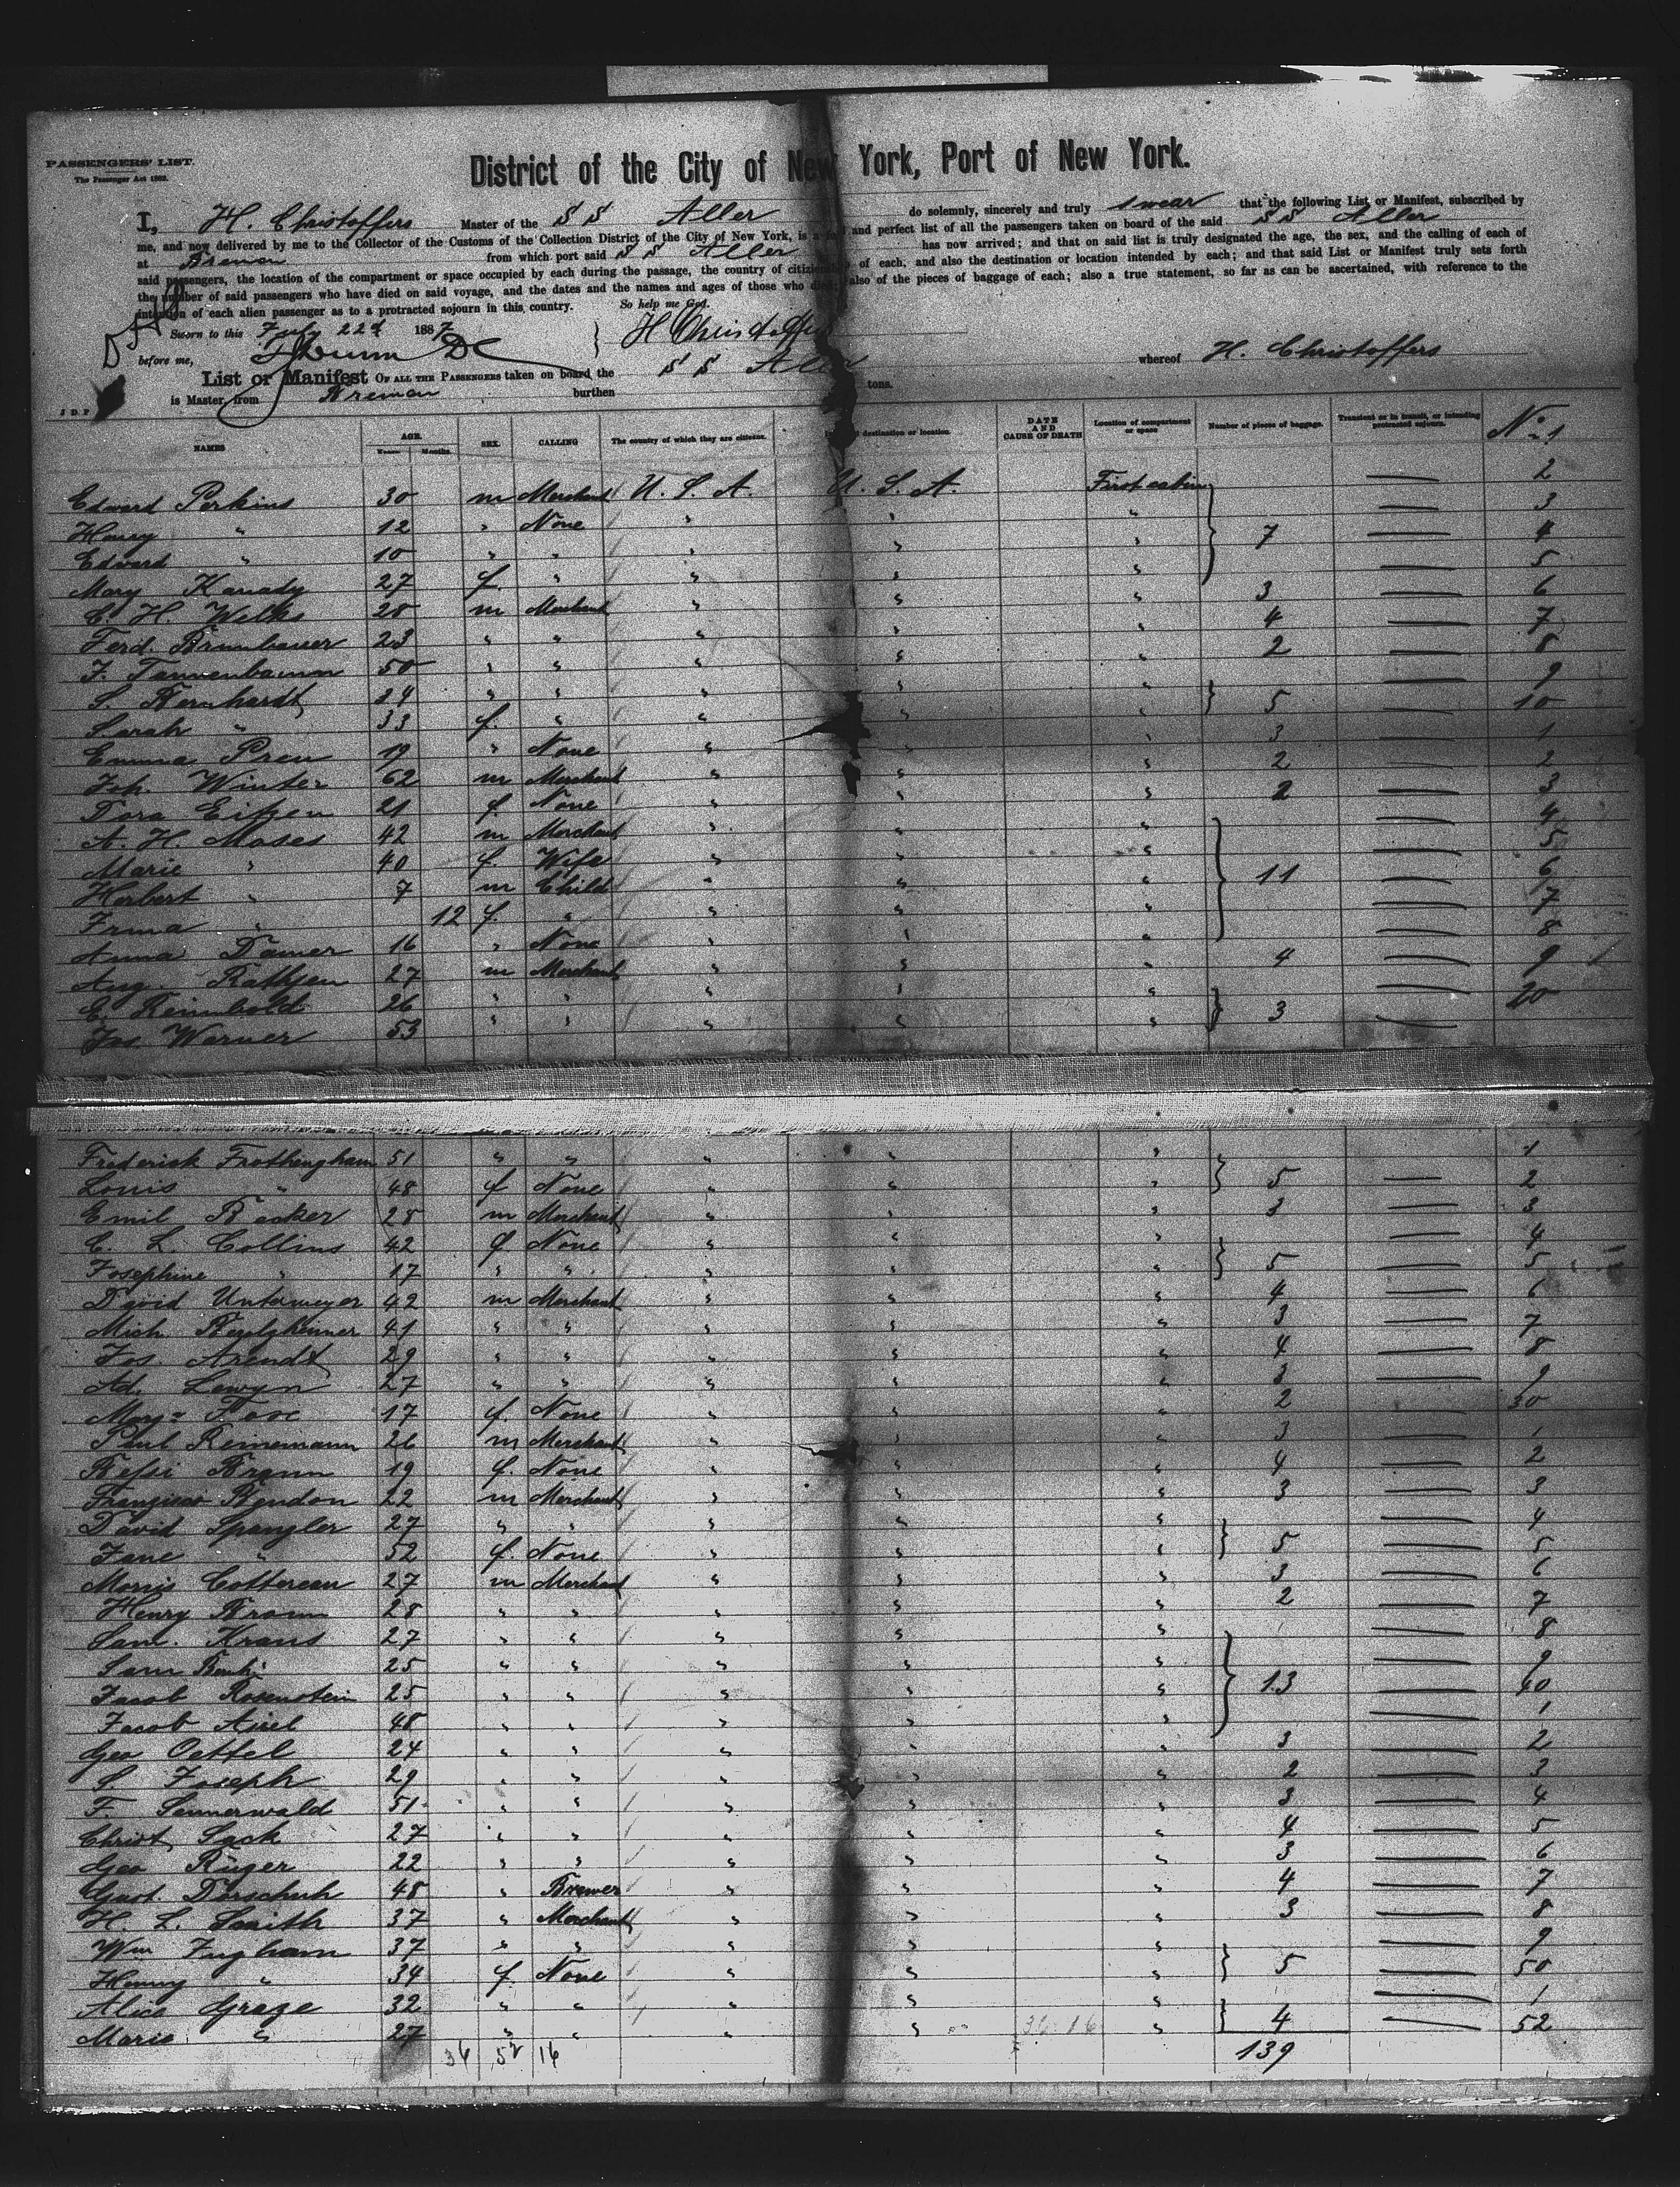 PASSENGERS' LIST.
The Passenger Act 1882.
District of the City of New York, Port of New York.
I, H. Christoffers Master of the S S Aller do solemnly, sincerely and truly swear that the following List or Manifest, subscribed by
me, and now delivered by me to the Collector of the Customs of the Collection District of the City of New York, is a full and perfect list of all the passengers taken on board of the said S S Aller
at Bremen from which port said S S Aller has now arrived; and that on said list is truly designated the age, the sex, and the calling of each of
said passengers, the location of the compartment or space occupied by each during the passage, the country of citizenship of each, and also the destination or location intended by each; and that said List or Manifest truly sets forth
the number of said passengers who have died on said voyage, and the dates and the names and ages of those who died; also of the pieces of baggage of each; also a true statement, so far as can be ascertained, with reference to the
intention of each alien passenger as to a protracted sojourn in this country. So help me God.
Sworn to this July 22d 1887 H Christoffers
before me,
List or Manifest OF ALL THE PASSENGERS taken on board the S S Aller whereof H. Christoffers
is Master, from Bremen burthen tons.
NAMES AGE. Years. Months. SEX. CALLING The country of which they are citizens. destination or location. DATE AND CAUSE OF DEATH Location of compartment or space Number of pieces of baggage. Transient or in transit, or intending protracted sojourn. No 1
Edward Perkins 30 m Merchant U. S. A. U. S. A. First cabin 2
Henry " 12 " None " " " 7 3
Edward " 10 " " " " " 4
Mary Kanady 27 f. " " " " 5
C. H. Welks 28 m Merchant " " " 3 6
Ferd. Brumbauer 23 " " " " " 4 7
J. Tannenbaum 50 " " " " " 2 8
S. Bernhardt 24 " " " " " 5 9
Sarah " 33 f. " " " " 10
Emma Pren 19 " None " " " 3 1
Joh. Winter 62 m Merchant " " " 2 2
Dora Eitzen 21 f. None " " " 2 3
A. H. Moses 42 m Merchant " " " 4
Marie " 40 f. Wife " " " 11 5
Herbert " 7 m Child " " " 6
Irma " 12 f. " " " " 7
Anna Damer 16 " None " " " 8
Aug. Rathjen 27 m Merchant " " " 4 9
E. Reimbold 26 " " " " " 3 20
Jas. Werner 53 " " " " "
Frederick Frothingham 51 " " " " " 1
Louis " 48 f None " " " 5 2
Emil Becker 28 m Merchant " " " 3 3
C. L. Collins 42 f. None " " " 4
Josephine " 17 " " " " " 5 5
David Untermeyer 42 m Merchant " " " 4 6
Mich. 41 " " " " " 3 7
Jos. Arendt 29 " " " " " 4 8
Ad. Lewyn 27 " " " " " 3 9
17 f. None " " " 2 30
Phil Reinemann 26 m Merchant " " " 3 1
Braun 19 f. None " " " 4 2
Rendon 22 m Merchant " " " 3 3
David Spangler 27 " " " " " 4
Jane " 52 f. None " " " 5 5
Morris Cottereau 27 m Merchant " " " 3 6
Henry 28 " " " " " 2 7
Sam. Kraus 27 " " " " " 8
Sam 25 " " " " " 9
Jacob Rosenstein 25 " " " " " 13 40
Jacob 48 " " " " " 1
Geo Oettel 24 " " " " " 3 2
S. Joseph 29 " " " " " 2 3
F. Sennerwald 51 " " " " " 3 4
Christ. Sack 27 " " " " " 4 5
Geo Rüger 22 " " " " " 3 6
Gust. Dorschuh 48 " Brewer " " " 4 7
H. L. Smith 37 " Merchant " " " 3 8
Wm Ingham 37 " " " " " 9
Henny " 34 f. None " " " 5 50
Alice Graze 32 " " " " " 1
Marie " 27 " " " " 36 16 " 4 52
36 52 16 139